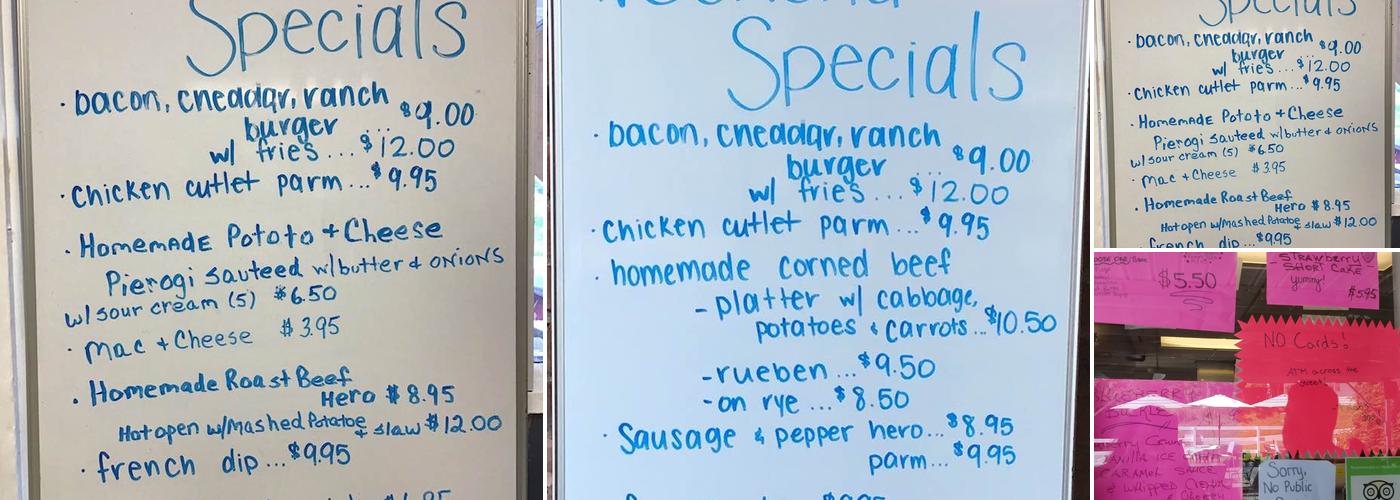 Specials
· bacon, cheddar, ranch
burger ... $9.00
w/ fries ... $12.00
· Chicken cutlet parm ... $9.95
· Homemade Pototo + Cheese
Pierogi Sauteed w/butter & onions
w/ sour cream (5) $6.50
· Mac + Cheese $3.95
· Homemade Roast Beef
Hero $8.95
Hot open w/Mashed Potatoe & slaw $12.00
· french dip ... $9.95
Specials
· bacon, cheddar, ranch
burger ... $9.00
w/ fries ... $12.00
· Chicken cutlet parm ... $9.95
· homemade corned beef
- platter w/ cabbage,
potatoes & carrots ... $10.50
- rueben ... $9.50
- on rye ... $8.50
· Sausage & pepper hero ... $8.95
parm ... $9.95
Specials
· bacon, cheddar, ranch
burger $9.00
w/ fries ... $12.00
· Chicken cutlet parm ... $9.95
· Homemade Potato + Cheese
Pierogi Sauteed w/butter & onions
w/ sour cream (5) $6.50
· Mac + Cheese $3.95
· Homemade Roast Beef
Hero $8.95
Hot open w/Mashed Potatoe & slaw $12.00
french dip ... $9.95
$5.50
Strawberry
Short Cake
yummy!
$5.95
NO Cards!
ATM across the
street!
Vanilla Ice
Caramel Sauce
& Whipped Cream
Sorry,
No Public